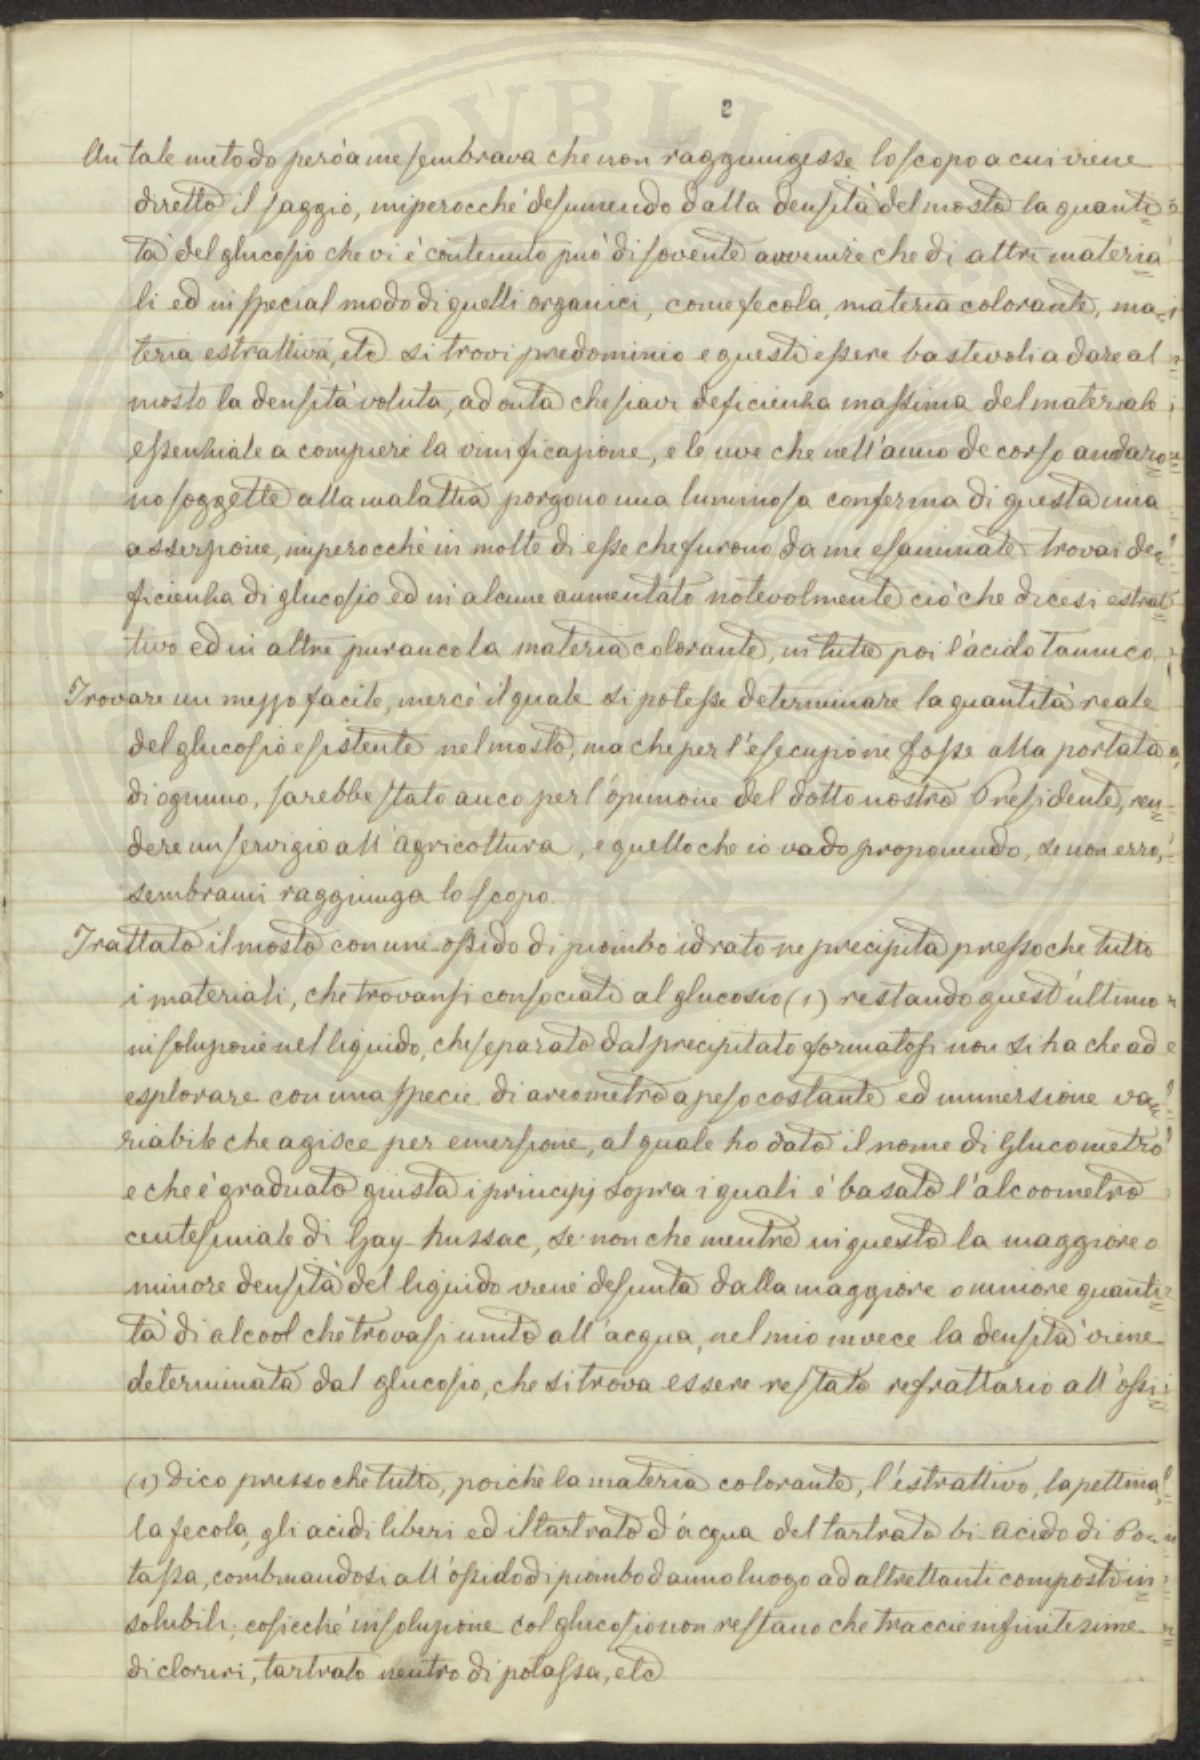 2
Un tale metodo però a me sembrava che non raggiungesse lo scopo a cui viene
diretto il saggio, imperocchè desumendo dalla densità del mosto la quanti=
tà del glucosio che vi è contenuto può di sovente avvenire che di altri materia=
li ed in special modo di quelli organici, come fecola, materia colorante, ma=
teria estrattiva, etc si trovi predominio e questi essere bastevoli a dare al
mosto la densità voluta, ad onta che siavi deficienza massima del materiale
essenziale a compiere la vinificazione, e le uve che nell'anno decorso andaro=
no soggette alla malattia porgono una luminosa conferma di questa mia
asserzione, imperocchè in molte di esse che furono da me esaminate trovai de=
ficienza di glucosio ed in alcune aumentato notevolmente ciò che dicesi estrat=
tivo ed in altre pur anco la materia colorante, in tutte poi l'acido tannico.
Trovare un mezzo facile, mercè il quale si potesse determinare la quantità reale
del glucosio esistente nel mosto, ma che per l'esecuzione fosse alla portata
di ognuno, sarebbe stato anco per l'opinione del dotto nostro Presidente, ren=
dere un servigio all'agricoltura, e quello che io vado proponendo, se non erro,
sembrami raggiunga lo scopo.
Trattato il mosto con uni-ossido di piombo idrato ne precipita pressoche tutto
i materiali, che trovansi consociati al glucosio (1) restando quest'ultimo
in soluzione nel liquido, che separato dal precipitato formatosi non si ha che ad
esplorare con una specie di areometro a peso costante ed immersione va=
riabile che agisce per emersione, al quale ho dato il nome di Glucometro
e che è graduato giusta i principj sopra i quali è basato l'alcoometro
centesimale di Gay-Lussac, se non che mentre in questo la maggiore o
minore densità del liquido viene desunta dalla maggiore o minore quanti=
tà di alcool che trovasi unito all'acqua, nel mio invece la densità viene
determinata dal glucosio, che si trova essere restato refrattario all'ossi=
(1) Dico pressochè tutto, poichè la materia colorante, l'estrattivo, la pettina,
la fecola, gli acidi liberi ed il tartrato d'acqua del tartrato bi-acido di Po=
tassa, combinandosi all'ossido di piombo danno luogo ad altrettanti composti in=
solubili; cosicchè in soluzione col glucosio non restano che traccie infinitesime
di cloruri, tartrato neutro di potassa, etc